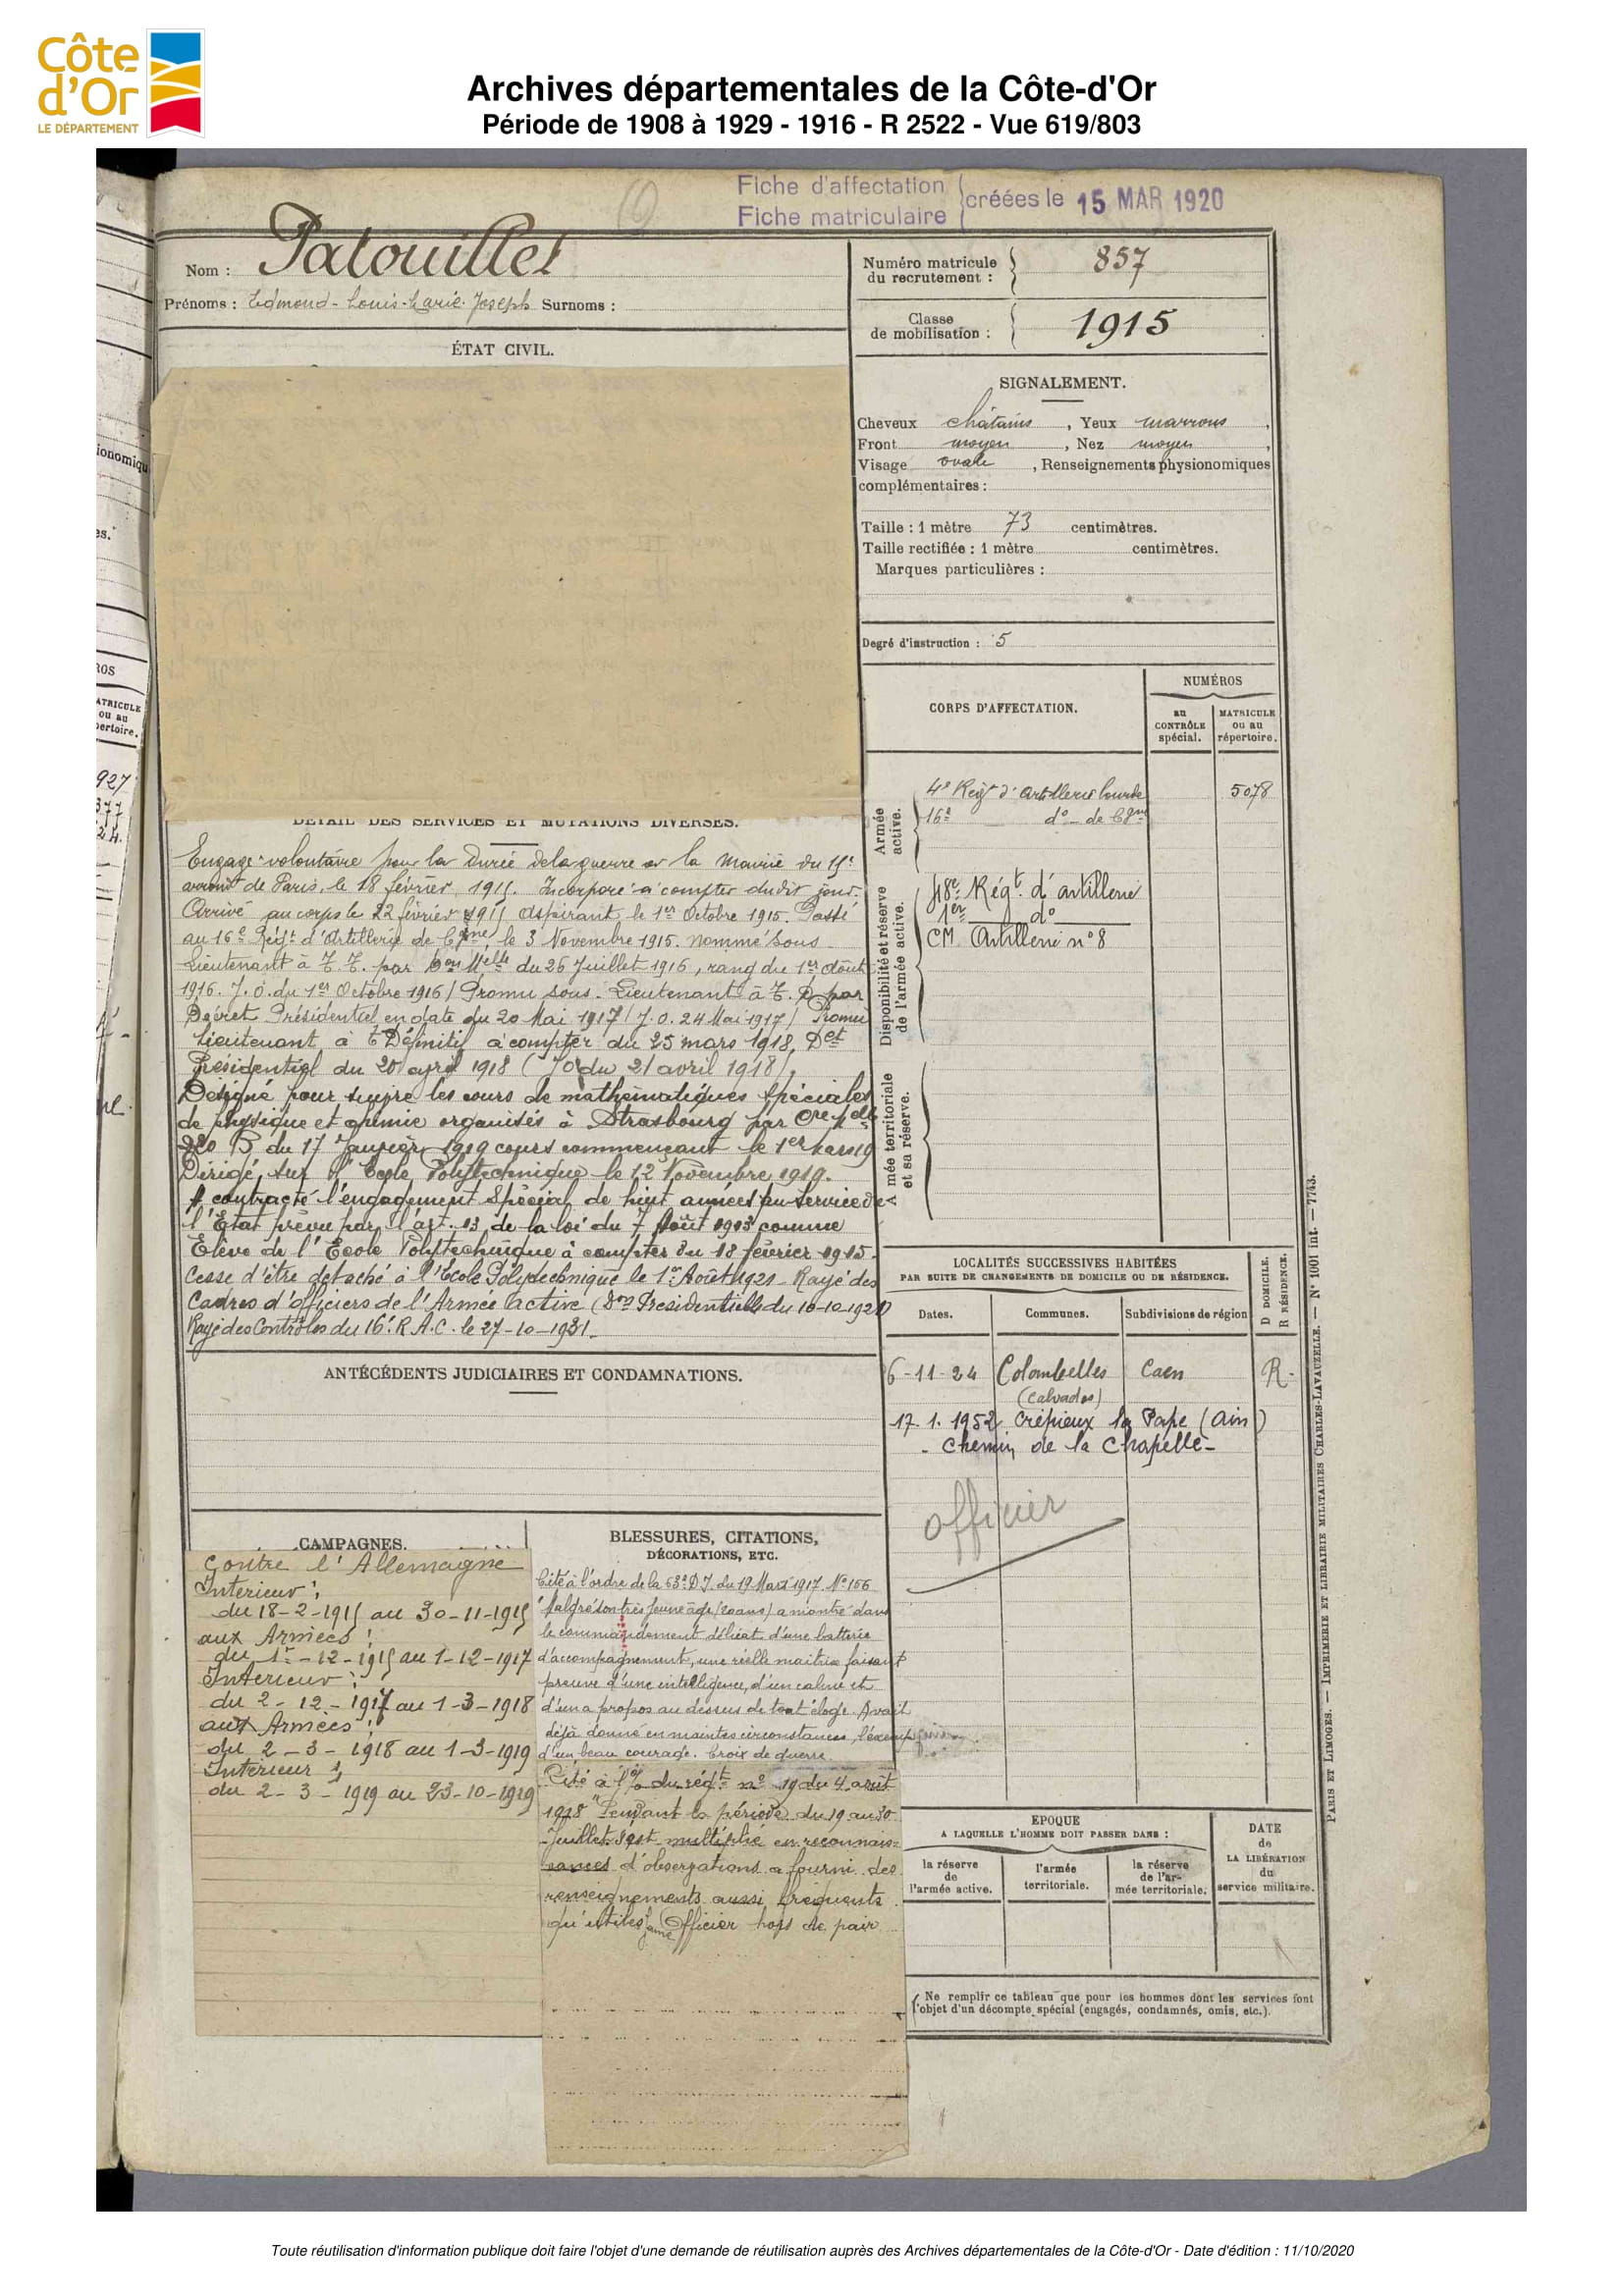 Côte
d'Or
LE DÉPARTEMENT
Archives départementales de la Côte-d'Or
Période de 1908 à 1929 - 1916 - R 2522 - Vue 619/803
Fiche d'affectation
Fiche matriculaire
créées le 15 MAR 1920
Nom : Patouillet
Prénoms : Edmond-Louis-Marie-Joseph Surnoms :
Numéro matricule
du recrutement : 857
Classe
de mobilisation : 1915
ÉTAT CIVIL.
SIGNALEMENT.
Cheveux châtains, Yeux marrons,
Front moyen, Nez moyen,
Visage ovale, Renseignements physionomiques
complémentaires :
Taille : 1 mètre 73 centimètres.
Taille rectifiée : 1 mètre centimètres.
Marques particulières :
Degré d'instruction : 5
CORPS D'AFFECTATION.
NUMÉROS
au
CONTRÔLE
spécial.
MATRICULE
ou au
répertoire.
Armée
active.
4e Régt d'Artillerie lourde 5078
16e do de Cgne
Disponibilité et réserve
de l'armée active.
48e Régt d'artillerie
1er do
CM Artillerie n°8
A mée territoriale
et sa réserve.
DÉTAIL DES SERVICES ET MUTATIONS DIVERSES.
Engagé volontaire pour la Durée de la guerre à la Mairie du 15e
arront de Paris, le 18 février 1915. Incorporé à compter dudit jour.
Arrivé au corps le 22 février 1915 Aspirant le 1er Octobre 1915. Passé
au 16e Régt d'Artillerie de Cgne, le 3 Novembre 1915. nommé Sous
Lieutenant à T.T. par Don Melle du 26 Juillet 1916, rang du 1er Août
1916. J.O. du 1er Octobre 1916/ Promu Sous-Lieutenant à T.D par
Décret Présidentiel en date du 20 Mai 1917/ J.O. 24 Mai 1917/ Promu
Lieutenant à T Définitif à compter du 25 mars 1918, Det
Présidentiel du 20 avril 1918 (JO du 21 avril 1918).
Désigné pour suivre les cours de mathématiques spéciales
de physique et chimie organisés à Strasbourg par Cre Melle
B du 17 Janvier 1919 cours commençant le 1er mars 19
Dirigé sur l'Ecole Polytechnique le 12 Novembre 1919.
A contracté l'engagement Spécial de huit années au service de
l'Etat prévu par l'art. 13 de la loi du 7 Août 1913 comme
Elève de l'Ecole Polytechnique à compter du 18 février 1915.
Cesse d'être détaché à l'Ecole Polytechnique le 1er Août 1921 - Rayé des
Cadres d'officiers de l'Armée active (Don Présidentielle du 10-10-1921)
Rayé des Contrôles du 16e R.A.C. le 27-10-1931.
LOCALITÉS SUCCESSIVES HABITÉES
PAR SUITE DE CHANGEMENTS DE DOMICILE OU DE RÉSIDENCE.
D DOMICILE.
R RÉSIDENCE.
Dates.
Communes.
Subdivisions de région
6-11-24 Colombelles Caen R.
(Calvados)
17.1.1952 Crépieux la Pape (Ain)
- Chemin de la Chapelle -
officier
ANTÉCÉDENTS JUDICIAIRES ET CONDAMNATIONS.
CAMPAGNES.
Contre l'Allemagne
Intérieur :
du 18-2-1915 au 30-11-1915
aux Armées :
du 1er-12-1915 au 1-12-1917
Intérieur :
du 2-12-1917 au 1-3-1918
aux Armées :
du 2-3-1918 au 1-3-1919
Intérieur :
du 2-3-1919 au 23-10-1919
BLESSURES, CITATIONS,
DÉCORATIONS, ETC.
Cité à l'ordre de la 63e D.I. du 19 Mars 1917. N° 156
"Malgré son très jeune âge (20 ans) a montré dans
le commandement délicat d'une batterie
d'accompagnement, une réelle maitrise faisant
preuve d'une intelligence, d'un calme et
d'un à propos au dessus de tout éloge. Avait
déjà donné en maintes circonstances, l'exemple
d'un beau courage. Croix de guerre.
Cité à l'o/ du régt n° 19 du 4 août
1918 "Pendant la période du 19 au 30
Juillet s'est multiplié en reconnais-
sances d'observations a fourni des
renseignements aussi fréquents
qu'utiles, jeune Officier hors de pair
EPOQUE
A LAQUELLE L'HOMME DOIT PASSER DANS :
la réserve
de
l'armée active.
l'armée
territoriale.
la réserve
de l'ar-
mée territoriale.
DATE
de
LA LIBÉRATION
du
service militaire.
Ne remplir ce tableau que pour les hommes dont les services font
l'objet d'un décompte spécial (engagés, condamnés, omis, etc.).
PARIS ET LIMOGES. — IMPRIMERIE ET LIBRAIRIE MILITAIRES CHARLES-LAVAUZELLE. — N° 1001 int. — 7743.
Toute réutilisation d'information publique doit faire l'objet d'une demande de réutilisation auprès des Archives départementales de la Côte-d'Or - Date d'édition : 11/10/2020